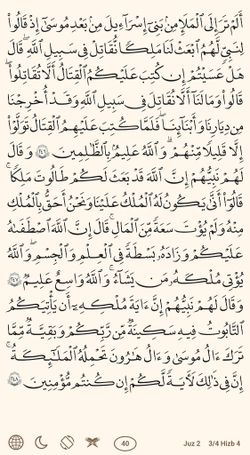 أَلَمْ تَرَ إِلَى ٱلْمَلَإِ مِنۢ بَنِىٓ إِسْرَٰٓءِيلَ مِنۢ بَعْدِ مُوسَىٰٓ إِذْ قَالُوا۟
لِنَبِىٍّ لَّهُمُ ٱبْعَثْ لَنَا مَلِكًا نُّقَٰتِلْ فِى سَبِيلِ ٱللَّهِ ۖ قَالَ
هَلْ عَسَيْتُمْ إِن كُتِبَ عَلَيْكُمُ ٱلْقِتَالُ أَلَّا تُقَٰتِلُوا۟ ۖ
قَالُوا۟ وَمَا لَنَآ أَلَّا نُقَٰتِلَ فِى سَبِيلِ ٱللَّهِ وَقَدْ أُخْرِجْنَا
مِن دِيَٰرِنَا وَأَبْنَآئِنَا ۖ فَلَمَّا كُتِبَ عَلَيْهِمُ ٱلْقِتَالُ تَوَلَّوْا۟
إِلَّا قَلِيلًا مِّنْهُمْ ۗ وَٱللَّهُ عَلِيمٌۢ بِٱلظَّٰلِمِينَ ٢٤٦ وَقَالَ
لَهُمْ نَبِيُّهُمْ إِنَّ ٱللَّهَ قَدْ بَعَثَ لَكُمْ طَالُوتَ مَلِكًا ۚ
قَالُوٓا۟ أَنَّىٰ يَكُونُ لَهُ ٱلْمُلْكُ عَلَيْنَا وَنَحْنُ أَحَقُّ بِٱلْمُلْكِ
مِنْهُ وَلَمْ يُؤْتَ سَعَةً مِّنَ ٱلْمَالِ ۚ قَالَ إِنَّ ٱللَّهَ ٱصْطَفَىٰهُ
عَلَيْكُمْ وَزَادَهُۥ بَسْطَةً فِى ٱلْعِلْمِ وَٱلْجِسْمِ ۖ وَٱللَّهُ
يُؤْتِى مُلْكَهُۥ مَن يَشَآءُ ۚ وَٱللَّهُ وَٰسِعٌ عَلِيمٌ ٢٤٧
وَقَالَ لَهُمْ نَبِيُّهُمْ إِنَّ ءَايَةَ مُلْكِهِۦٓ أَن يَأْتِيَكُمُ
ٱلتَّابُوتُ فِيهِ سَكِينَةٌ مِّن رَّبِّكُمْ وَبَقِيَّةٌ مِّمَّا
تَرَكَ ءَالُ مُوسَىٰ وَءَالُ هَٰرُونَ تَحْمِلُهُ ٱلْمَلَٰٓئِكَةُ ۚ
إِنَّ فِى ذَٰلِكَ لَءَايَةً لَّكُمْ إِن كُنتُم مُّؤْمِنِينَ ٢٤٨
40 Juz 2 3/4 Hizb 4